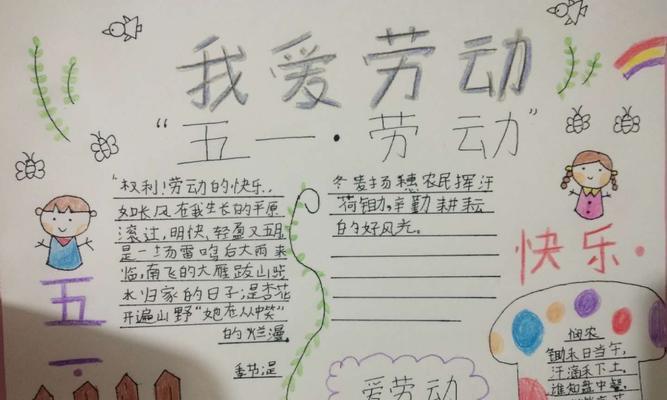 我爱劳动
“五一·劳动”
“权利！劳动的快乐，
如长风在我生长的平原
滚过，明快、轻盈又五月
是一场雷鸣后大雨来
临，南飞的大雁跋山
水归家的日子；是杏花
开遍山野“她在从中笑”
的烂漫。
季节是
冬麦扬穗农民挥汗
荷锄，辛勤耕耘
的好风光。
五
一
快乐·
爱劳动
悯农
锄禾日当午，
汗滴禾下土。
谁知盘中餐，